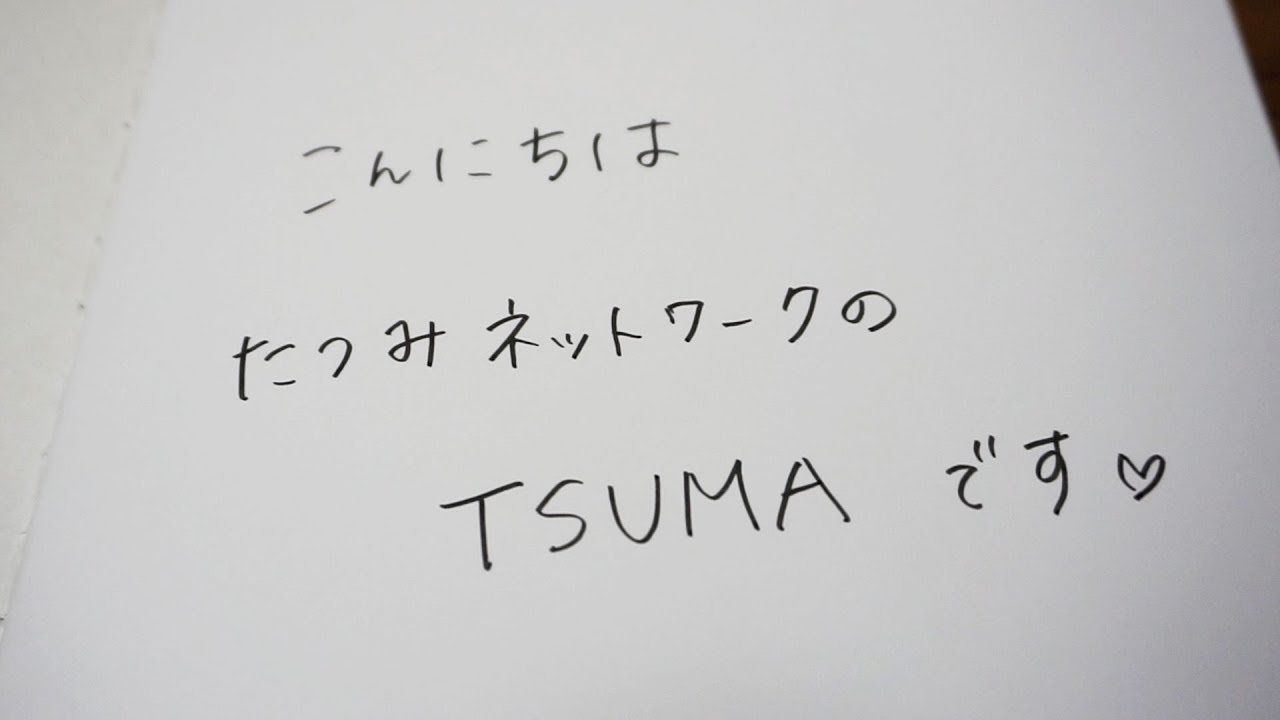 こんにちは
たつみネットワークの
TSUMA です♡